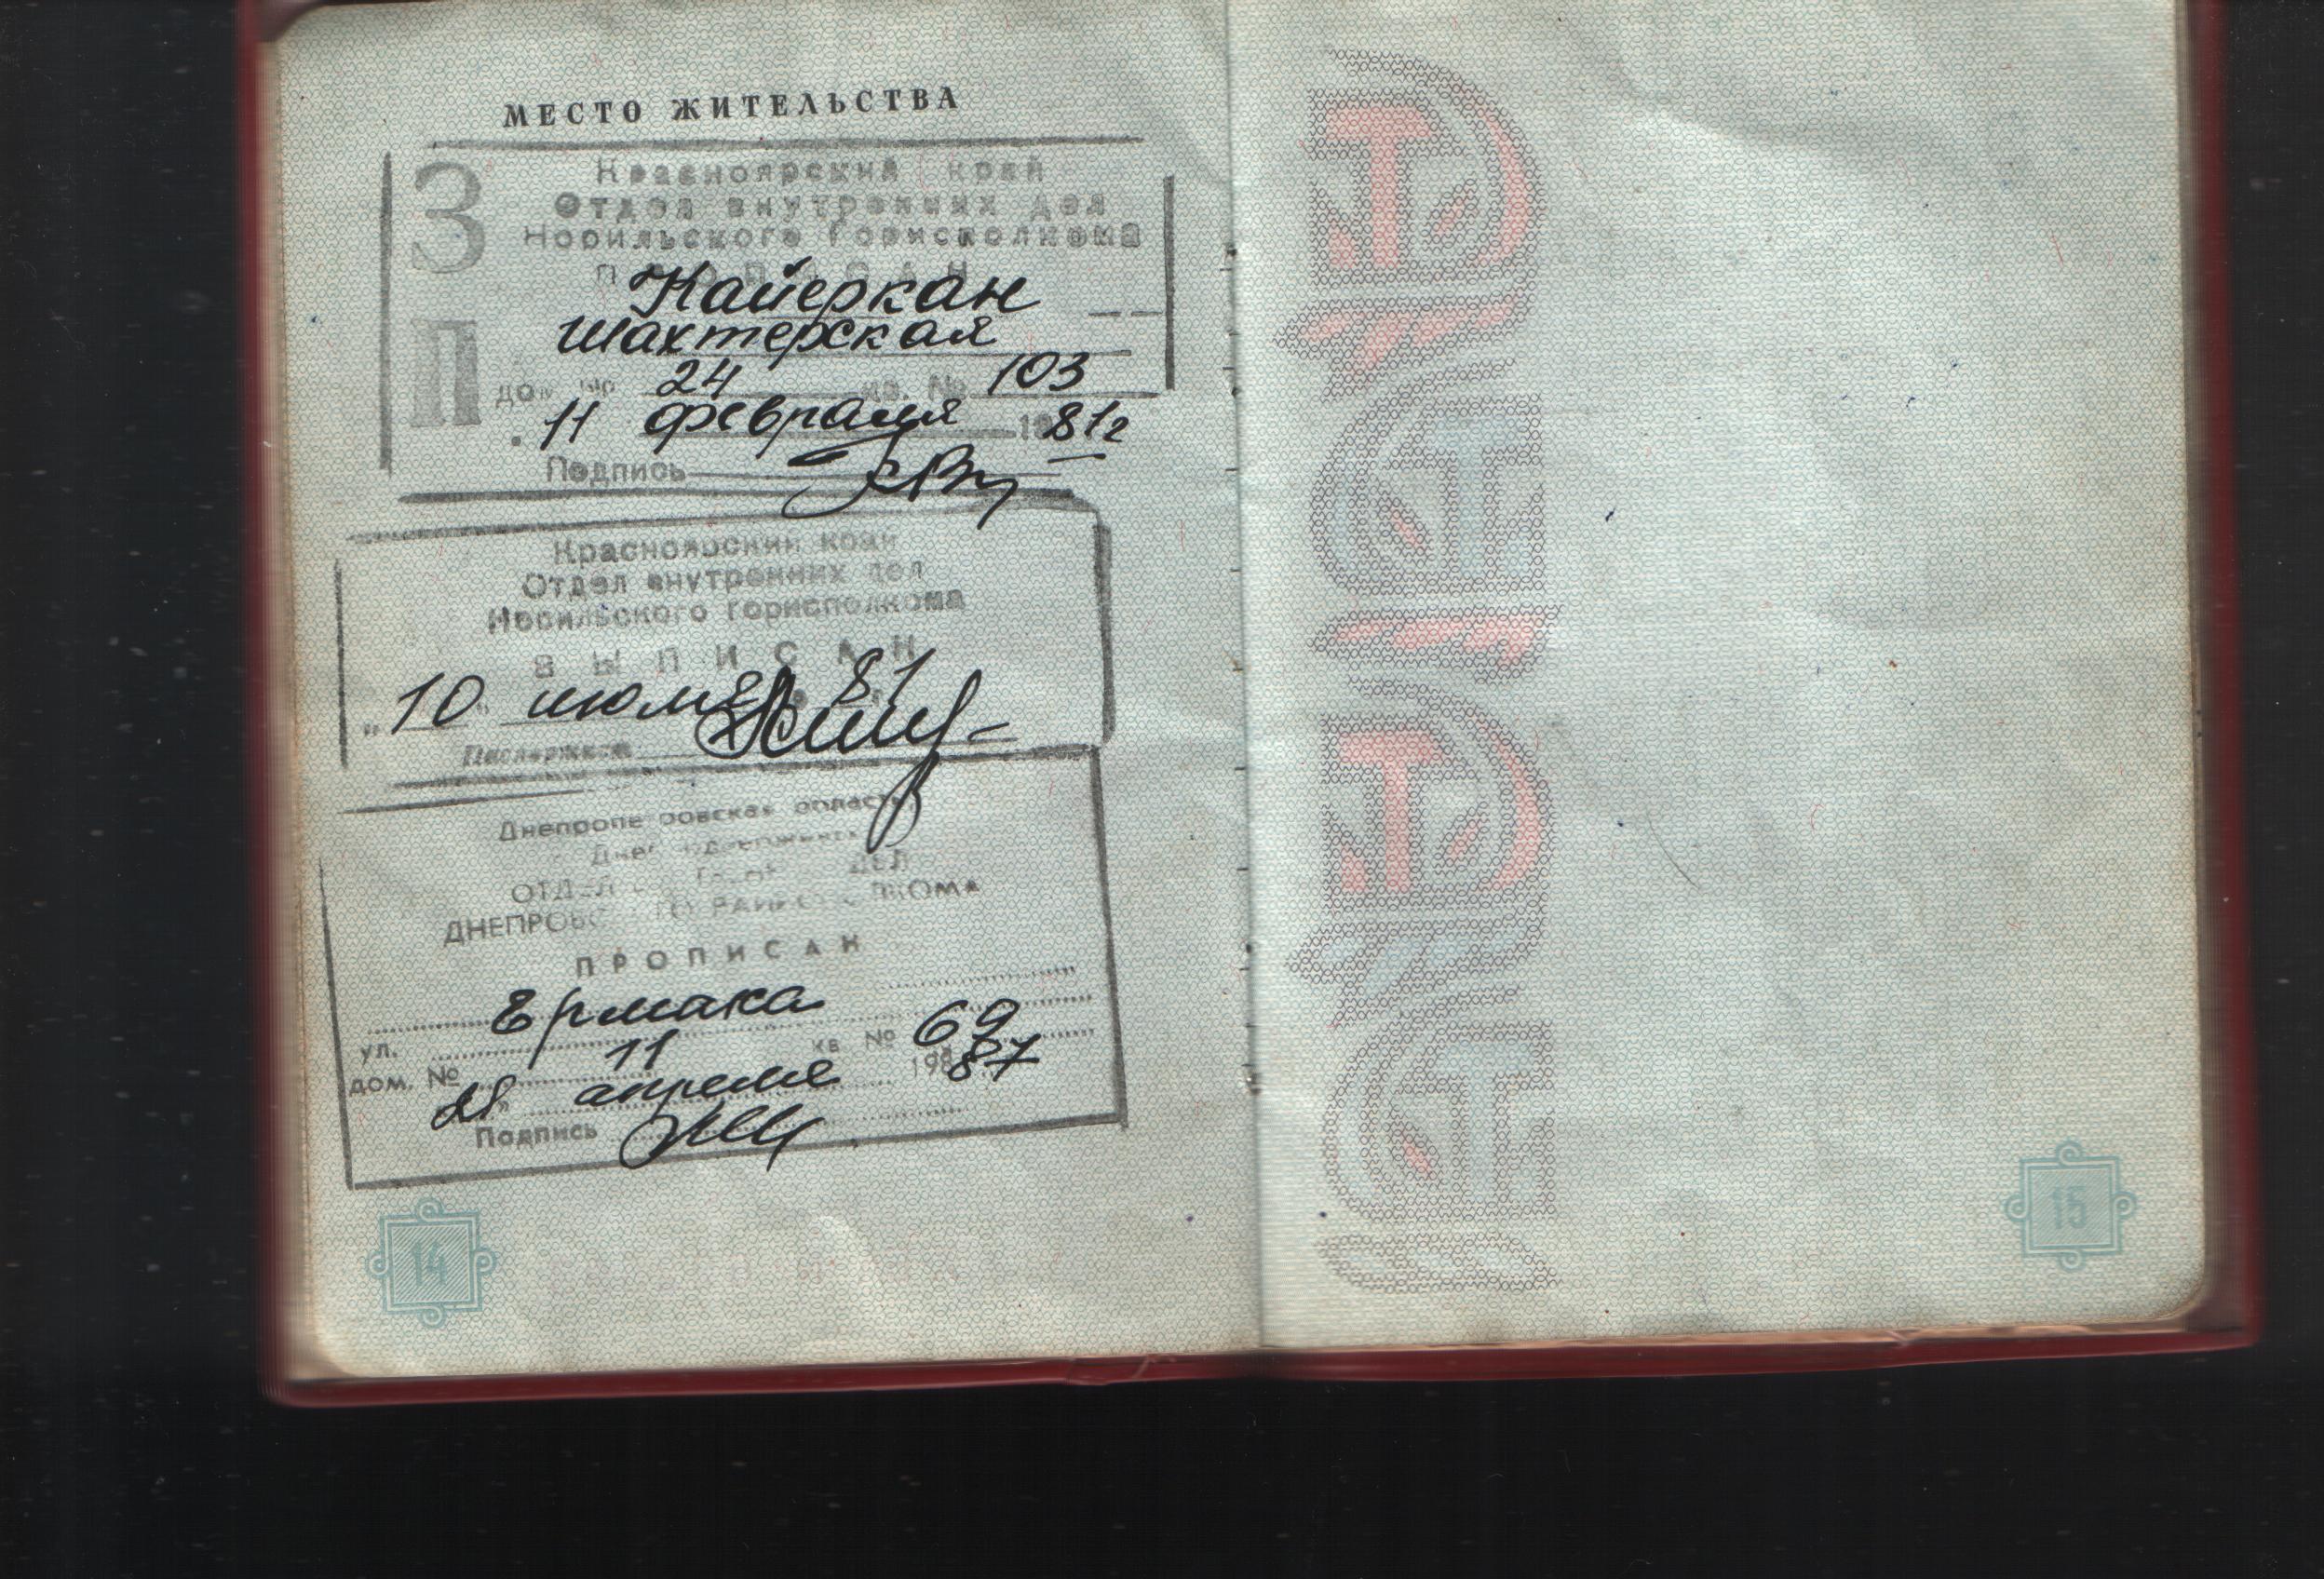 МЕСТО ЖИТЕЛЬСТВА
ЗП
Красноярский край
Отдел внутренних дел
Норильского Горисполкома
ПРОПИСАН
Кайеркан
Шахтерская
дом № 24 кв. № 103
11 февраля 1981 г
Подпись
Красноярский край
Отдел внутренних дел
Норильского горисполкома
ВЫПИСАН
"10" 81
Днепропетровская область
ОТДЕЛ ДЕЛ
ПРОПИСАН
ул. Ермака
дом. № 11 кв № 69
апреля 1987
Подпись
14
15